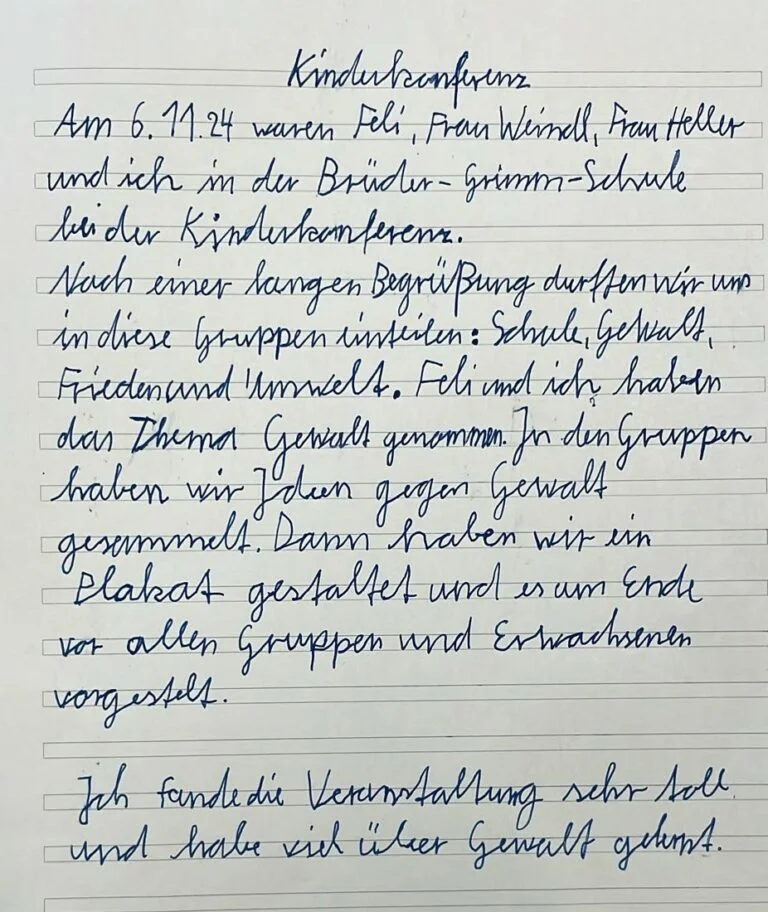 Kinderkonferenz
Am 6.11.24 waren Feli, Frau Weindl, Frau Heller
und ich in der Brüder-Grimm-Schule
bei der Kinderkonferenz.
Nach einer langen Begrüßung durften wir uns
in diese Gruppen einteilen: Schule, Gewalt,
Frieden und Umwelt. Feli und ich haben
das Thema Gewalt genommen. In den Gruppen
haben wir Ideen gegen Gewalt
gesammelt. Dann haben wir ein
Plakat gestaltet und es am Ende
vor allen Gruppen und Erwachsenen
vorgestelt.
Ich fande die Veranstaltung sehr toll
und habe viel über Gewalt gelernt.